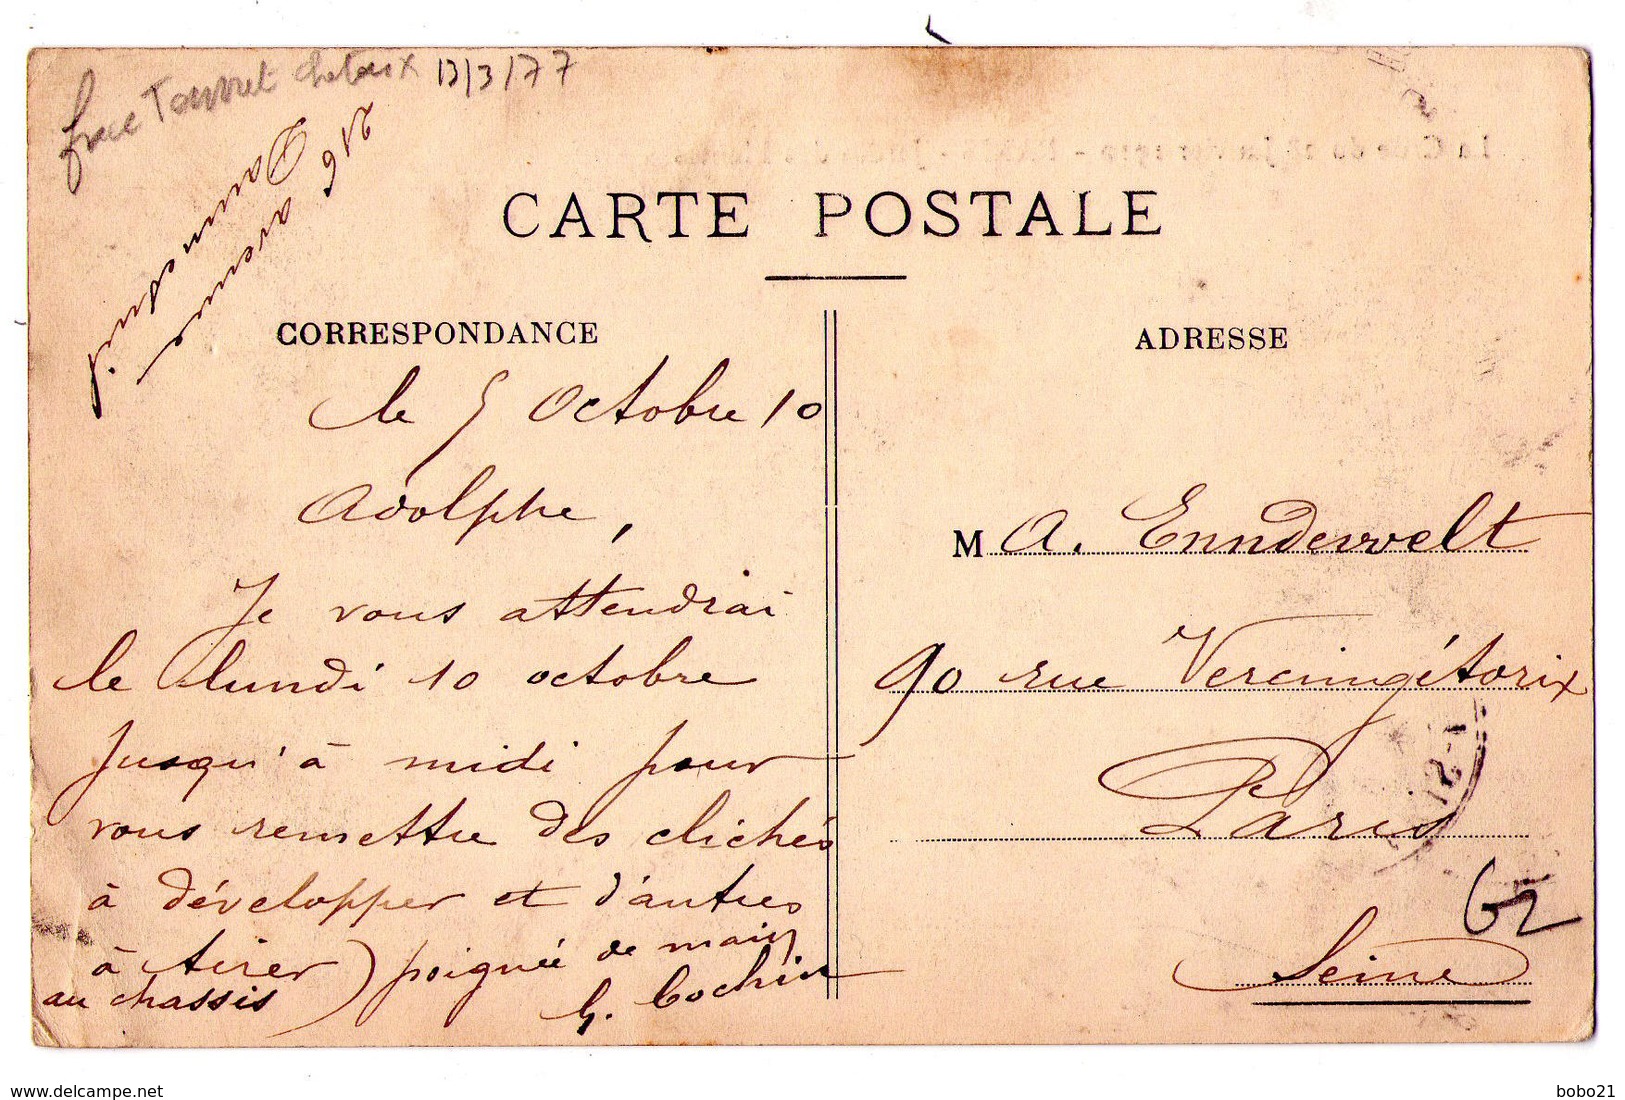 13/3/77
216 avenue
Daumesnil
CARTE POSTALE
CORRESPONDANCE
le 5 Octobre 10
Adolphe,
Je vous attendrai
le lundi 10 octobre
jusqu'à midi pour
vous remettre des clichés
à développer et d'autres
à tirer) poignée de main
au chassis
G. Cochin
ADRESSE
M A. Ennderwelt
90 rue Vercingétorix
Paris
62
Seine
delcampe.net
bobo21